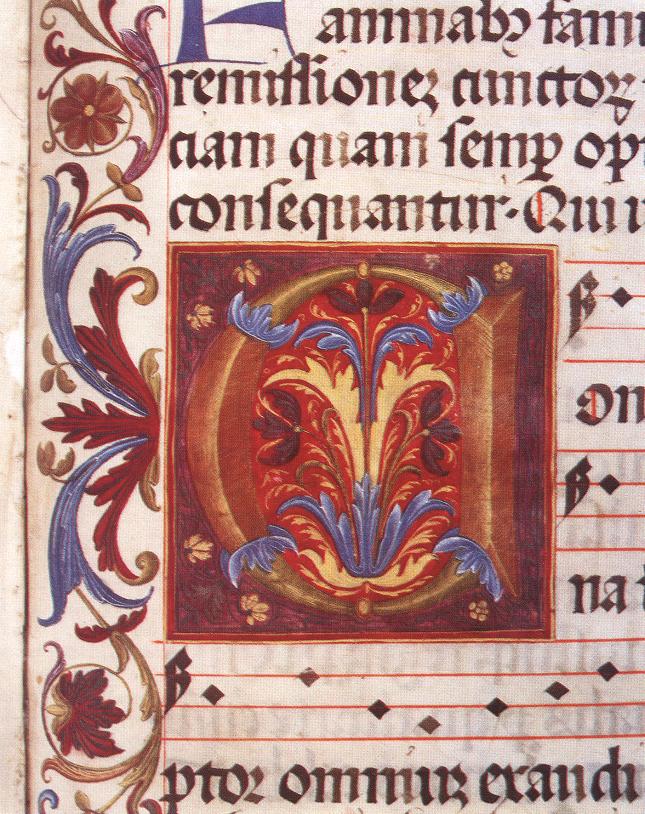 animabꝫ fam
remissioneꝫ cunctoꝝ
ciam quam semꝑ op
consequantur. Qui
C on
na
ptor omniuꝫ exaudi